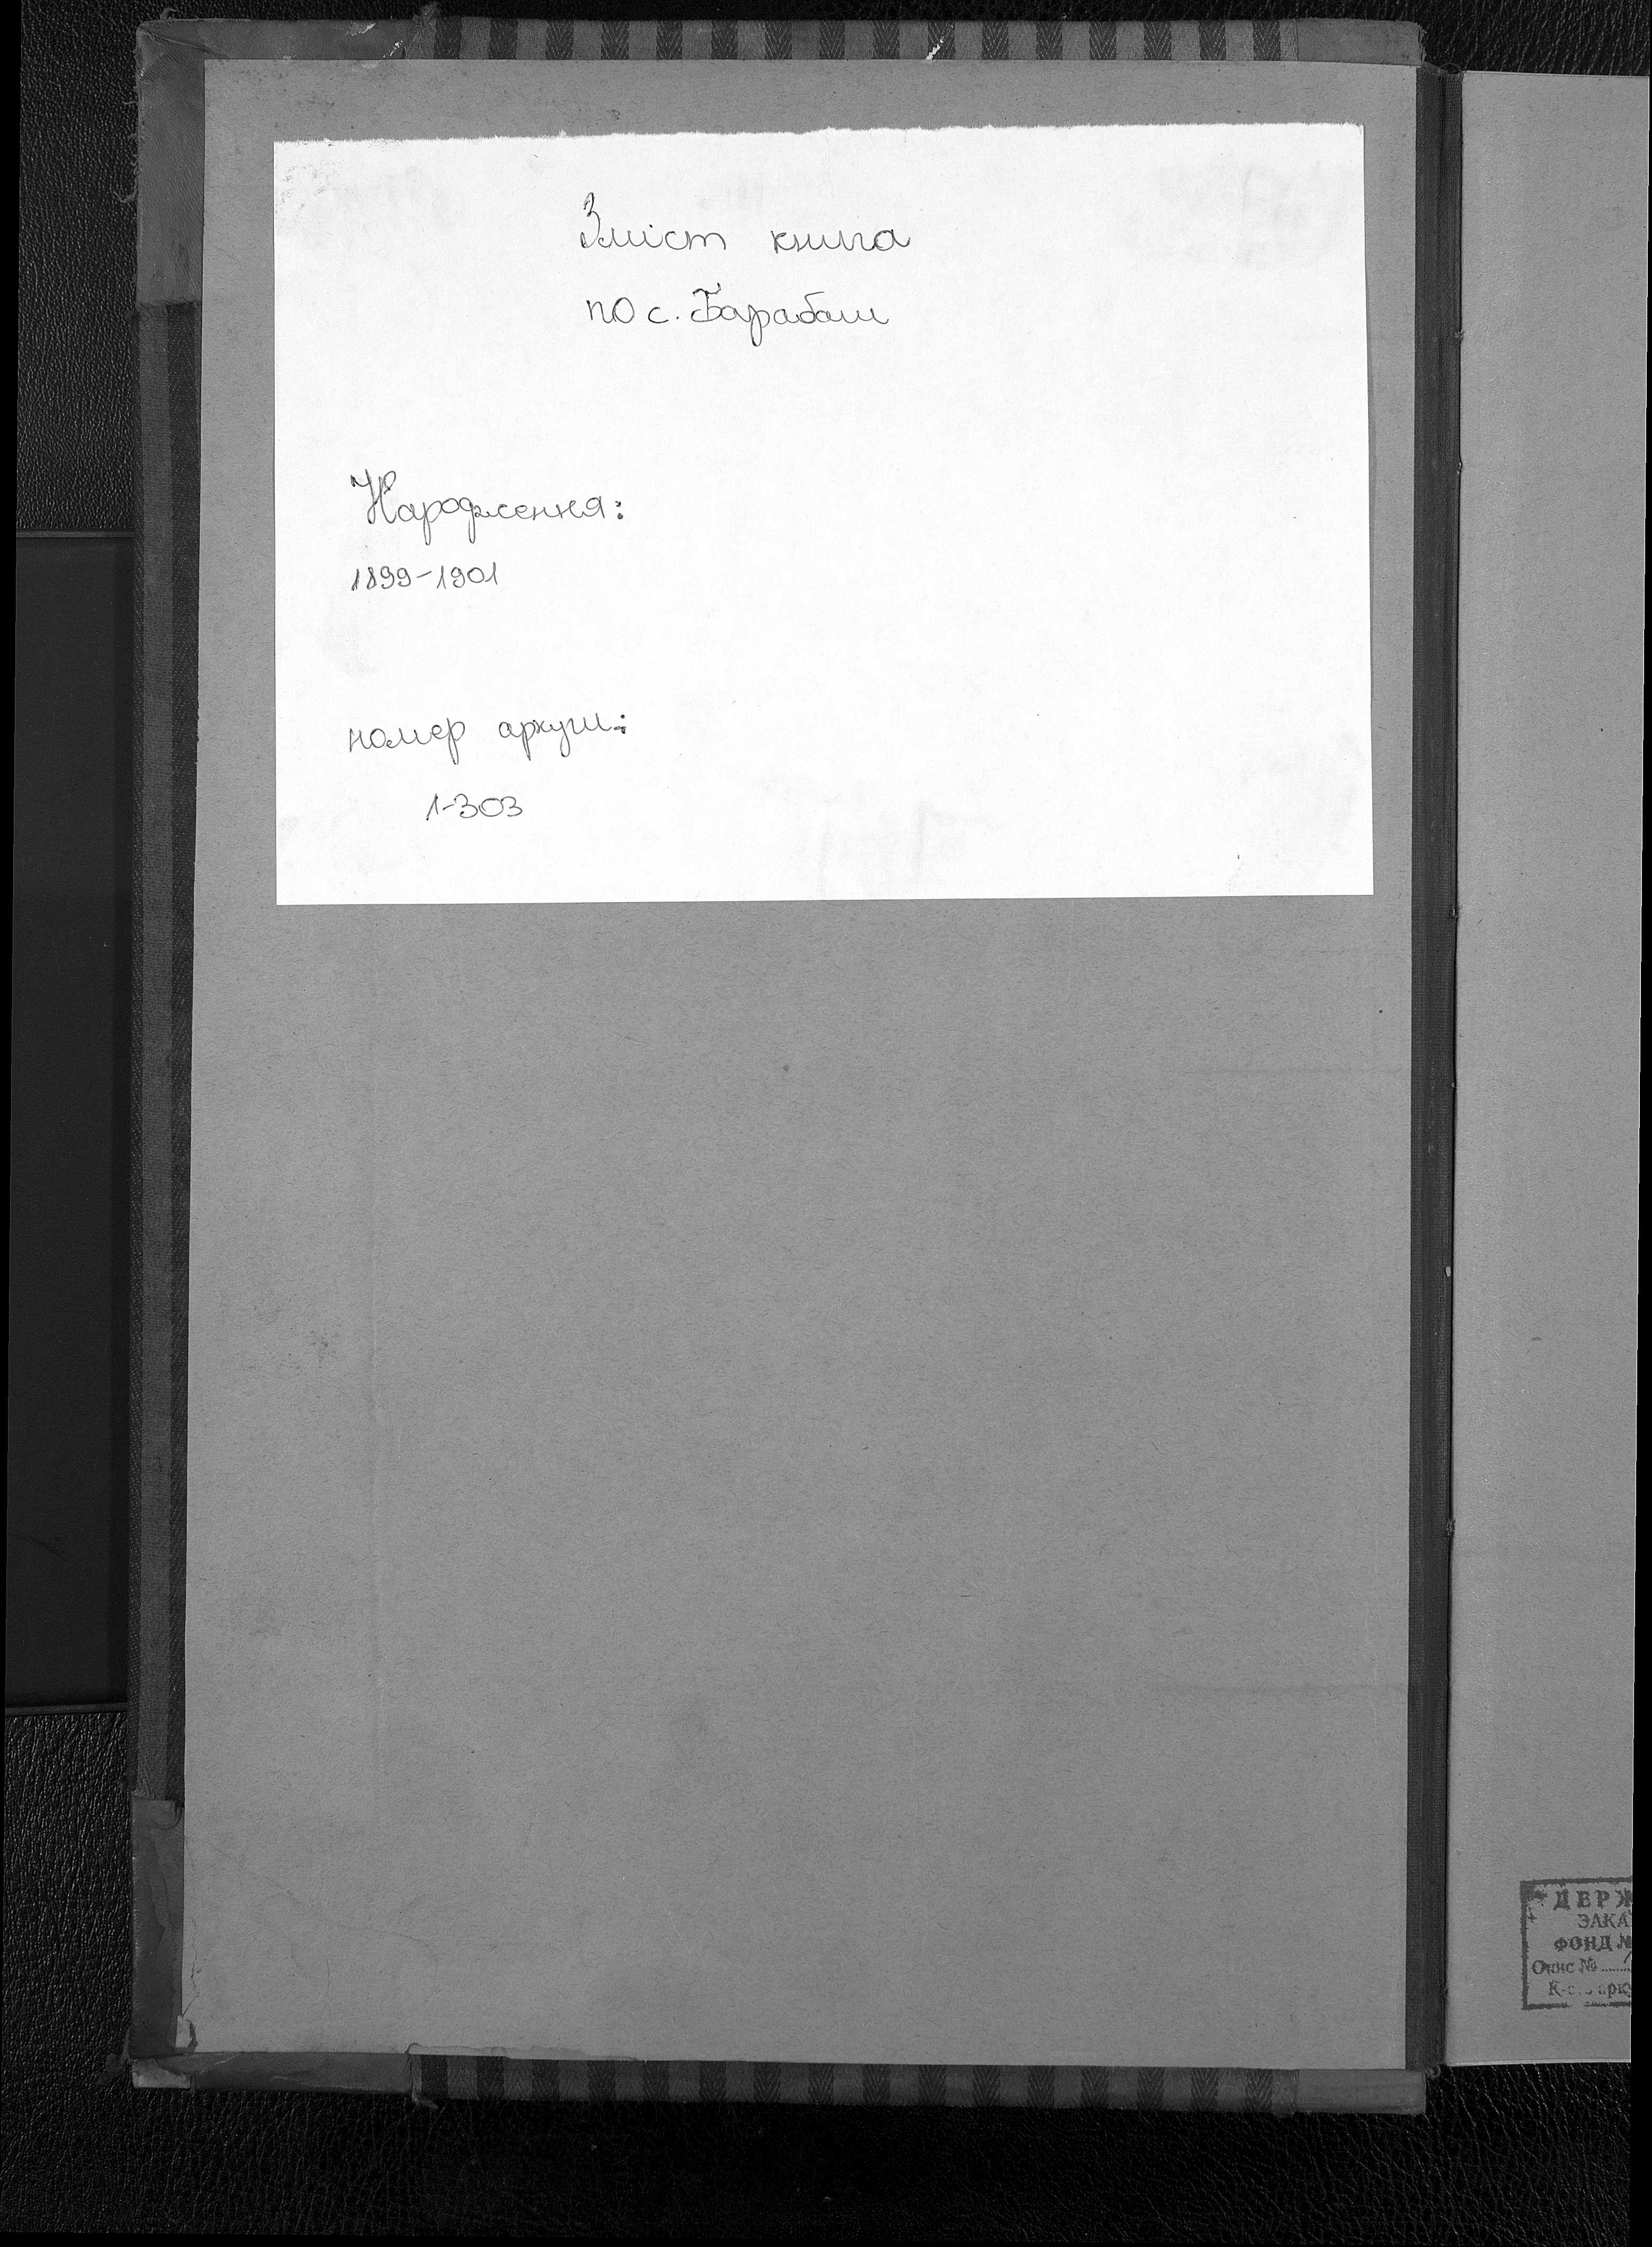 Зміст книга
по с. Барабаш
Народження:
1899-1901
номер аркуш:
1-303
ДЕРЖ
ЗАКА
ФОНД №
Опис №
арку